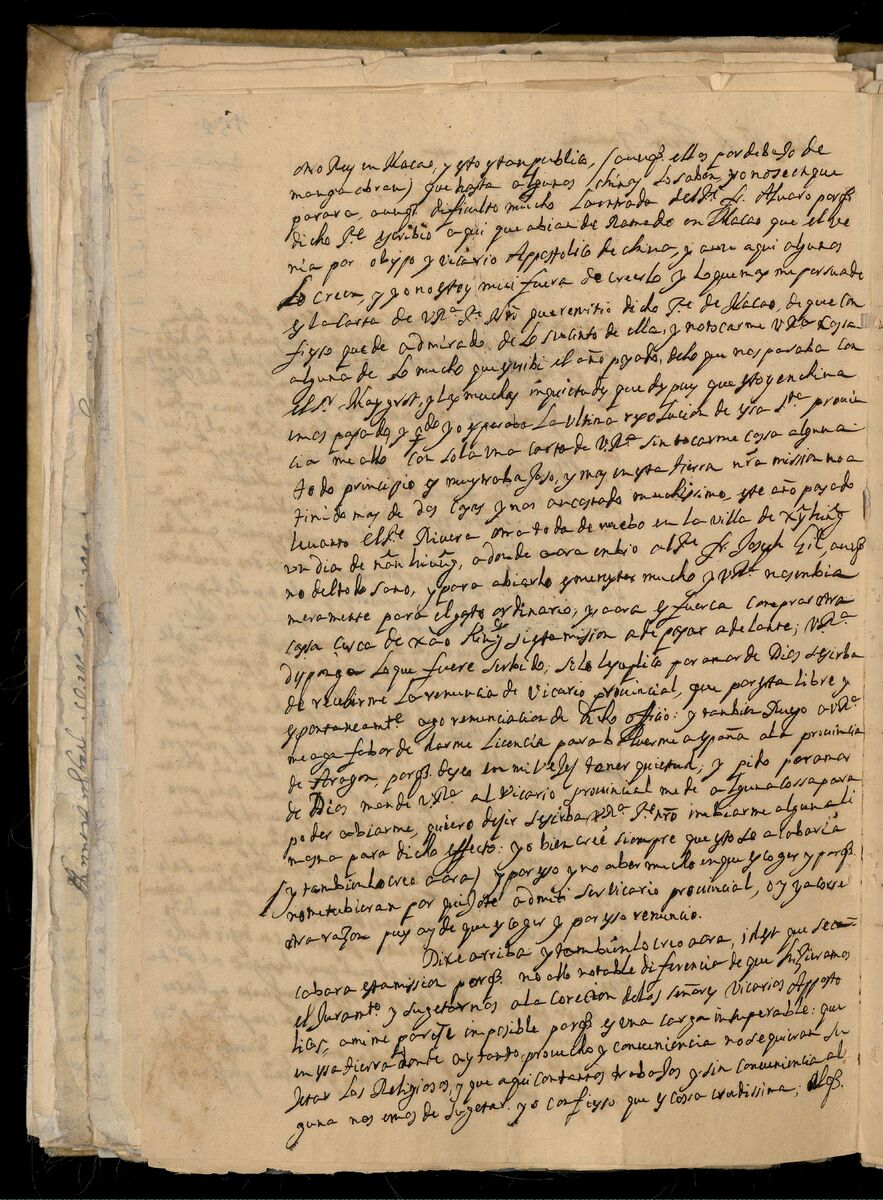 otro Rey en Macao, y esto es tan publico, (aunq̃. ellos por debajo de
manga obran) que hasta algunos chinos lo saben, yo no se en que
parara, aunq̃. dificulto mucho la entrada del Pe. fr. Alvaro porq̃.
dicho Pe. escribio aqui que abian de Ramado en Macao que el ve
nia por obispo y Vicario Appostolico de china, y aun aqui algunos
lo creen, y yo no estoy mui fuera de creerlo y lo que mas me persuade
es la Carta de VRa. Pe. Nro que remitio dicho Pe. de Macao, de que con
fiesso que de admirado de lo sucinto de ella, y no tocarme VRa cossa
alguna de lo mucho que escribi el año pasado, de lo que nos pasaba con
el Sr. Maygrot, y las muchas inquietudes que despues que estoy en china
emos pasado, y qdo. yo esperaba la ultima resolucion de essa Sta. provin
cia me allo con sola una carta de VRa. sin tocarme cossa alguna
todo principio es muy trabajoso, y mas en esta tierra nra mission no a
tinido mas de dos casas y nos an costado muchissimo, este año pasado
levanto el Pe. Rivera otra toda de nuebo en la villa de
un dia de adonde aora embio al Pe. fr. Joseph Gil, aunq̃
no del todo sano, y para abiarlo es menester mucho y VRa. nos embia
meramente para el gasto ordinario, y aora es fuerca comprar otra
casa cerca de si esta mission a de pasar adelante; VRa.
disponga lo que fuere serbido; solo le suplico por amor de Dios se sirba
de recibirme la renuncia de Vicario provincial, que por esta libre y
espontaneamte. ago renunciacion de dicho officio: y tambien Ruego a VRa.
me aga fabor de darme licencia para bolverme a españa a la provincia
de Aragon, porq̃. deseo en mi vejes tener quietud; y pido por amor
de Dios mande VRa. al Vicario provincial me de alguna cossa para
poder abiarme, quiero desir se sirba VRa. Pe. nro imbiarme alguna li
mosna para dicho effecto: yo bien creé siempre que esto se acabaria
(y tambien lo creo aora) y por esso y no aber mucho en que escoger y porq̃.
no me tubieran por admiti ser vicario provincial, oy ya corre
otra razon pues ay de que escoger y por esso renuncio.
Dixe arriba y tambien lo creo aora, idest que se a
cabara esta mission porq̃. no allo notable diferencia de que hizieramos
el Juramto. y sugetarnos a la coreccion de los señores Vicarios Apposto
licos, a mi me parese imposible porq̃. es una carga insuperable: que
en essa tierra donde ay tanto provecho y conveniencia no se quieran su
jetar los Religiosos, y que aqui con tantos trabajos y sin conveniencia al
guna nos emos de sugetar. yo confiesso que es cossa crudissima,